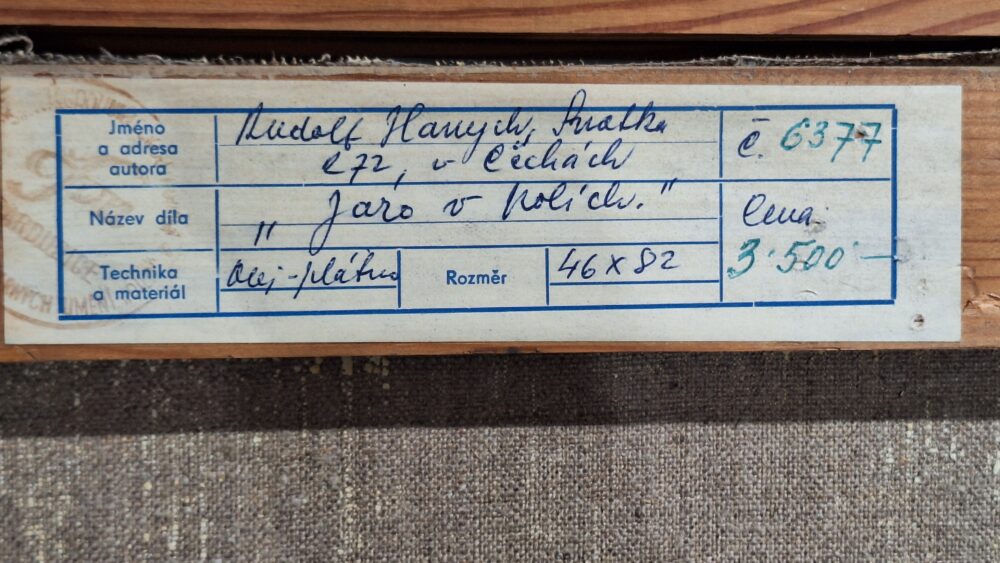 Jméno
a adresa
autora
Rudolf Hanych, Svratka
č 72, v Čechách
č. 6377
Název díla
„Jaro v polích."
Cena
3.500 —
Technika
a materiál
Olej-plátno
Rozměr
46 x 82